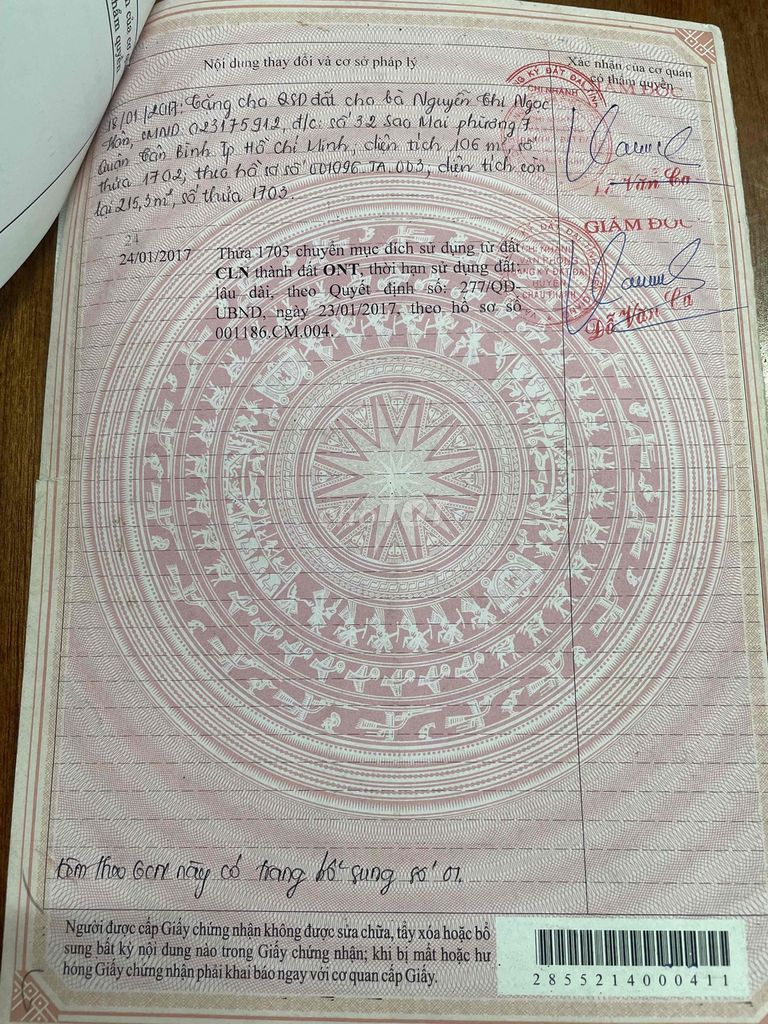 Nội dung thay đổi và cơ sở pháp lý
Xác nhận của cơ quan
có thẩm quyền
18/01/2017. Tặng cho QSD đất cho bà Nguyễn Thị Ngọc
Hân, CMND 023175912, đ/c: số 32 Sao Mai phường 7
Quận Tân Bình Tp Hồ Chí Minh, diện tích 106 m², số
thửa 1702; theo hồ sơ số 001096.TA.003, diện tích còn
lại 215,5m², số thửa 1703.
GIÁM ĐỐC
Đỗ Văn Ca
24
24/01/2017
Thửa 1703 chuyển mục đích sử dụng từ đất
CLN thành đất ONT, thời hạn sử dụng đất:
lâu dài, theo Quyết định số: 277/QĐ-
UBND, ngày 23/01/2017, theo hồ sơ số
001186.CM.004.
GIÁM ĐỐC
CHI NHÁNH
VĂN PHÒNG
ĐĂNG KÝ ĐẤT ĐAI
HUYỆN
CHÂU THÀNH
Đỗ Văn Ca
Kèm theo GCN này có trang bổ sung số 01.
Người được cấp Giấy chứng nhận không được sửa chữa, tẩy xóa hoặc bổ
sung bất kỳ nội dung nào trong Giấy chứng nhận; khi bị mất hoặc hư
hỏng Giấy chứng nhận phải khai báo ngay với cơ quan cấp Giấy.
2855214000411